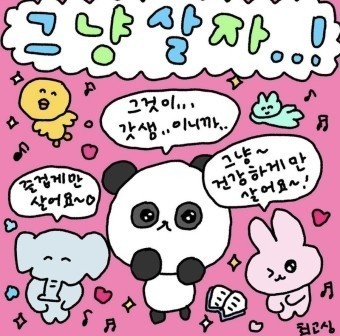 그냥 살자..!
그것이...
갓생..이니까..
즐겁게만
살어요~o
그냥~
건강하게만
살어요~!
최고심